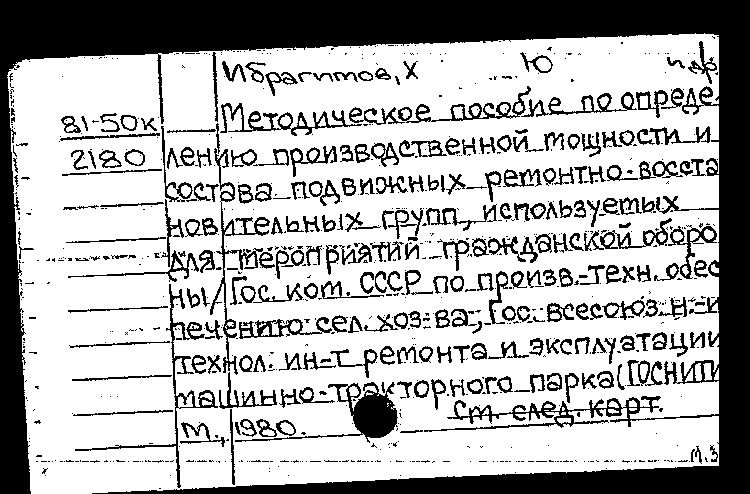 Ибрагимов, Х Ю и др
81-50к Методическое пособие по опреде-
2180 лению производственной мощности и
состава подвижных ремонтно-восста
новительных групп, используемых
для мероприятий гражданской оборо
ны / Гос. ком. СССР по произв.-техн. обес
печению сел. хоз-ва, Гос. всесоюз. н.-и
технол. ин-т ремонта и эксплуатации
машинно-тракторного парка (ГОСНИТИ
М., 1980. См. след. карт.
м.з